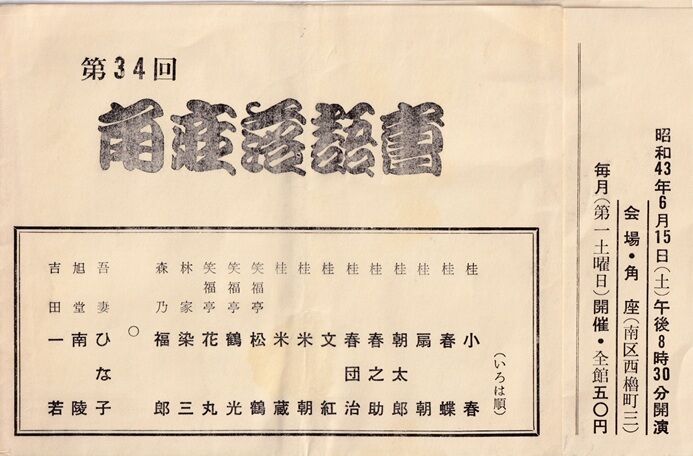 第34回
角座落語會
(いろは順)
桂 小春
桂 春蝶
桂 扇朝
桂 朝太郎
桂 春之助
桂 春団治
桂 文紅
桂 米朝
桂 米蔵
笑福亭 松鶴
笑福亭 鶴光
笑福亭 花丸
林家 染三
森乃 福郎
○
吾妻 ひな子
旭堂 南陵
吉田 一若
昭和43年6月15日(土)午後8時30分開演
会場・角 座(南区西櫓町三)
毎月(第一土曜日)開催・全館五〇円